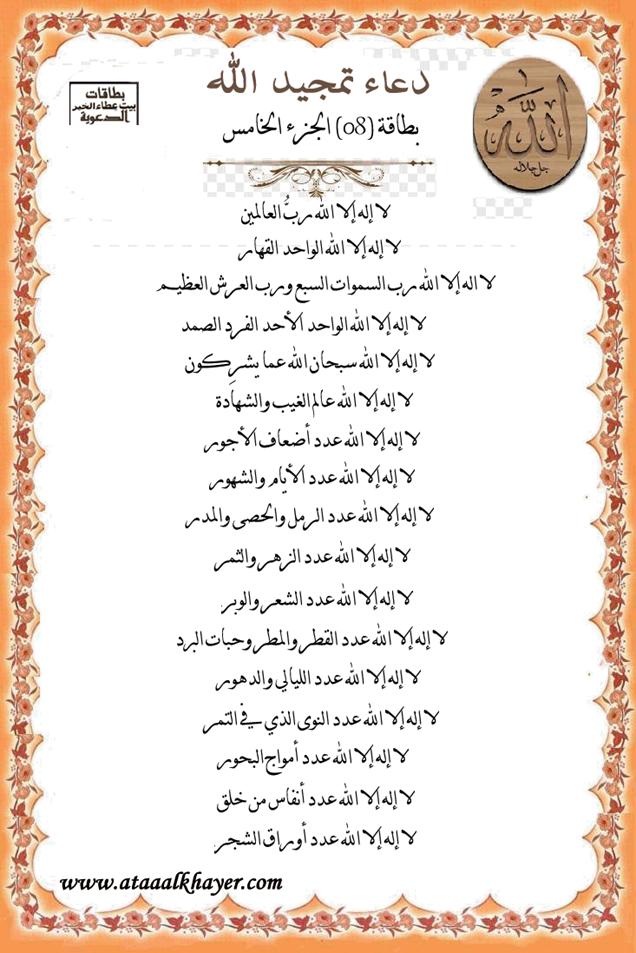 دعاء تمجيد الله
بطاقات
بيت عطاء الخير
الدعوية
الله
جل جلاله
بطاقة (08) الجزء الخامس
لا إله إلا الله ربُّ العالمين
لا إله إلا الله الواحد القهار
لا اله إلا الله رب السموات السبع ورب العرش العظيم
لا إله إلا الله الواحد الأحد الفرد الصمد
لا إله إلا الله سبحان الله عما يشركون
لا إله إلا الله عالم الغيب والشهادة
لا إله إلا الله عدد أضعاف الأجور
لا إله إلا الله عدد الأيام والشهور
لا إله إلا الله عدد الرمل والحصى والمدر
لا إله إلا الله عدد الزهر والثمر
لا إله إلا الله عدد الشعر والوبر
لا إله إلا الله عدد القطر والمطر وحبات البرد
لا إله إلا الله عدد الليالي والدهور
لا إله إلا الله عدد النوى الذي في التمر
لا إله إلا الله عدد أمواج البحور
لا إله إلا الله عدد أنفاس من خلق
لا إله إلا الله عدد أوراق الشجر
www.ataaalkhayer.com